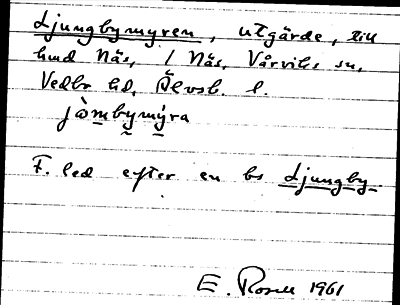 Ljungbymyren, utgärde, till
hmd Näs, / Näs, Vårviks sn,
Vedbo hd, Älvsb. l.
jòmbymýra
F. led efter en bs Ljungby.
E. Rosell 1961